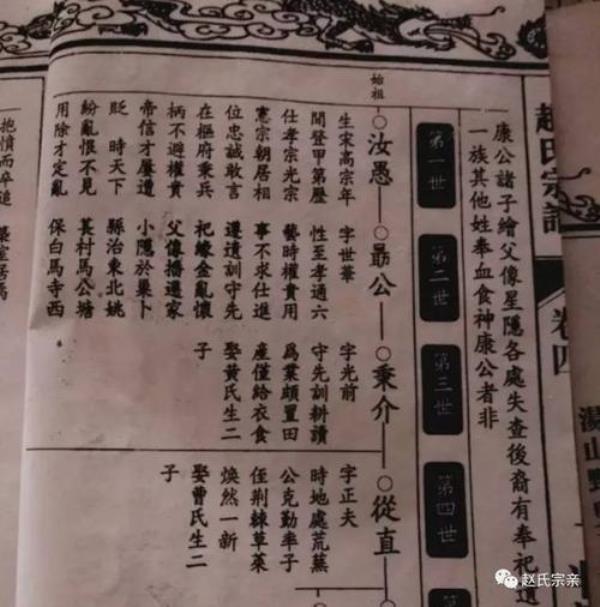 趙氏宗譜
卷四
湯山野
康公諸子繪父像星隱各處失查後裔有奉祀遺
一族其他姓奉血食神康公者非
第一世
第二世
第三世
第四世
第
始祖
汝愚
公
秉介
從直
生宋高宗年
間登甲第歷
仕孝宗光宗
憲宗朝居相
位忠誠敢言
在樞府秉兵
柄不避權貴
帝信才屢遭
貶 時天下
紛亂恨不見
用除才定亂
抱憤而卒追
字世華
性至孝通六
藝時權貴用
事不求仕進
遵遺訓守先
祀緣金亂懷
父像播遷家
小隱於巢卜
縣治東北姚
萇村馬公塘
保白馬寺西
築室居焉
字光前
守先訓耕讀
爲業頗置田
產僅給衣食
娶黃氏生二
子
字正夫
時地處荒蕪
公克勤率子
侄荊棘草萊
煥然一新
娶曹氏生二
子
赵氏宗亲